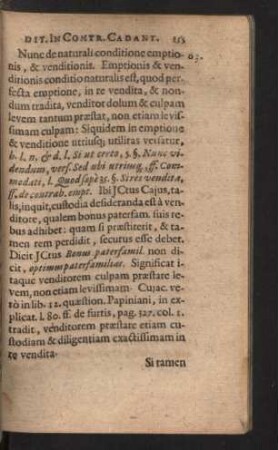 DIT. IN CONTR. CADANT.
Nunc de naturali conditione emptio- 63.
nis, & venditionis. Emptionis & ven-
ditionis conditio naturalis est, quod per-
fecta emptione, in re vendita, & non-
dum tradita, venditor dolum & culpam
levem tantum præstat, non etiam levis-
simam culpam: Siquidem in emptione
& venditione utriusq; utilitas versatur,
h. l. n. & d. l. Si ut certo, 5. §. Nunc vi-
dendum, vers. Sed ubi utriusq, ff. Com-
modati, l. Quod sæpè 35. §. Si res vendita,
ff. de contrah. empt. Ibi JCtus Cajus, ta-
lis, inquit, custodia desideranda est à ven-
ditore, qualem bonus paterfam. suis re-
bus adhibet: quam si præstiterit, & ta-
men rem perdidit, securus esse debet.
Dicit JCtus Bonus paterfamil. non di-
cit, optimus paterfamilias. Significat i-
taque venditorem culpam præstare le-
vem, non etiam levissimam. Cujac. ve-
rò in lib. 12. quæstion. Papiniani, in ex-
plicat. l. 80. ff. de furtis, pag. 327. col. 1.
tradit, venditorem præstare etiam cu-
stodiam & diligentiam exactissimam in
re vendita.
Si tamen